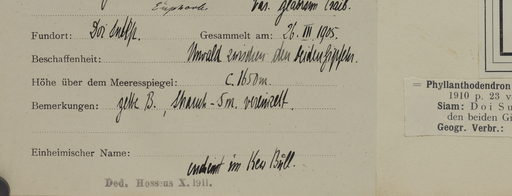 Euphorb. var. glabrum Craib.
Fundort: Doi Sutep.
Gesammelt am: 26. III 1905.
Beschaffenheit: Urwald zwischen den beiden Gipfeln.
Höhe über dem Meeresspiegel: c. 1650 m.
Bemerkungen: gelbe B., Strauch - 5m. vereinzelt.
Einheimischer Name:
im Kew Bull.
Ded. Hosseus X. 1911.
= Phyllanthodendron
1910 p. 23
Siam: Doi Su
den beiden Gi
Geogr. Verbr.: